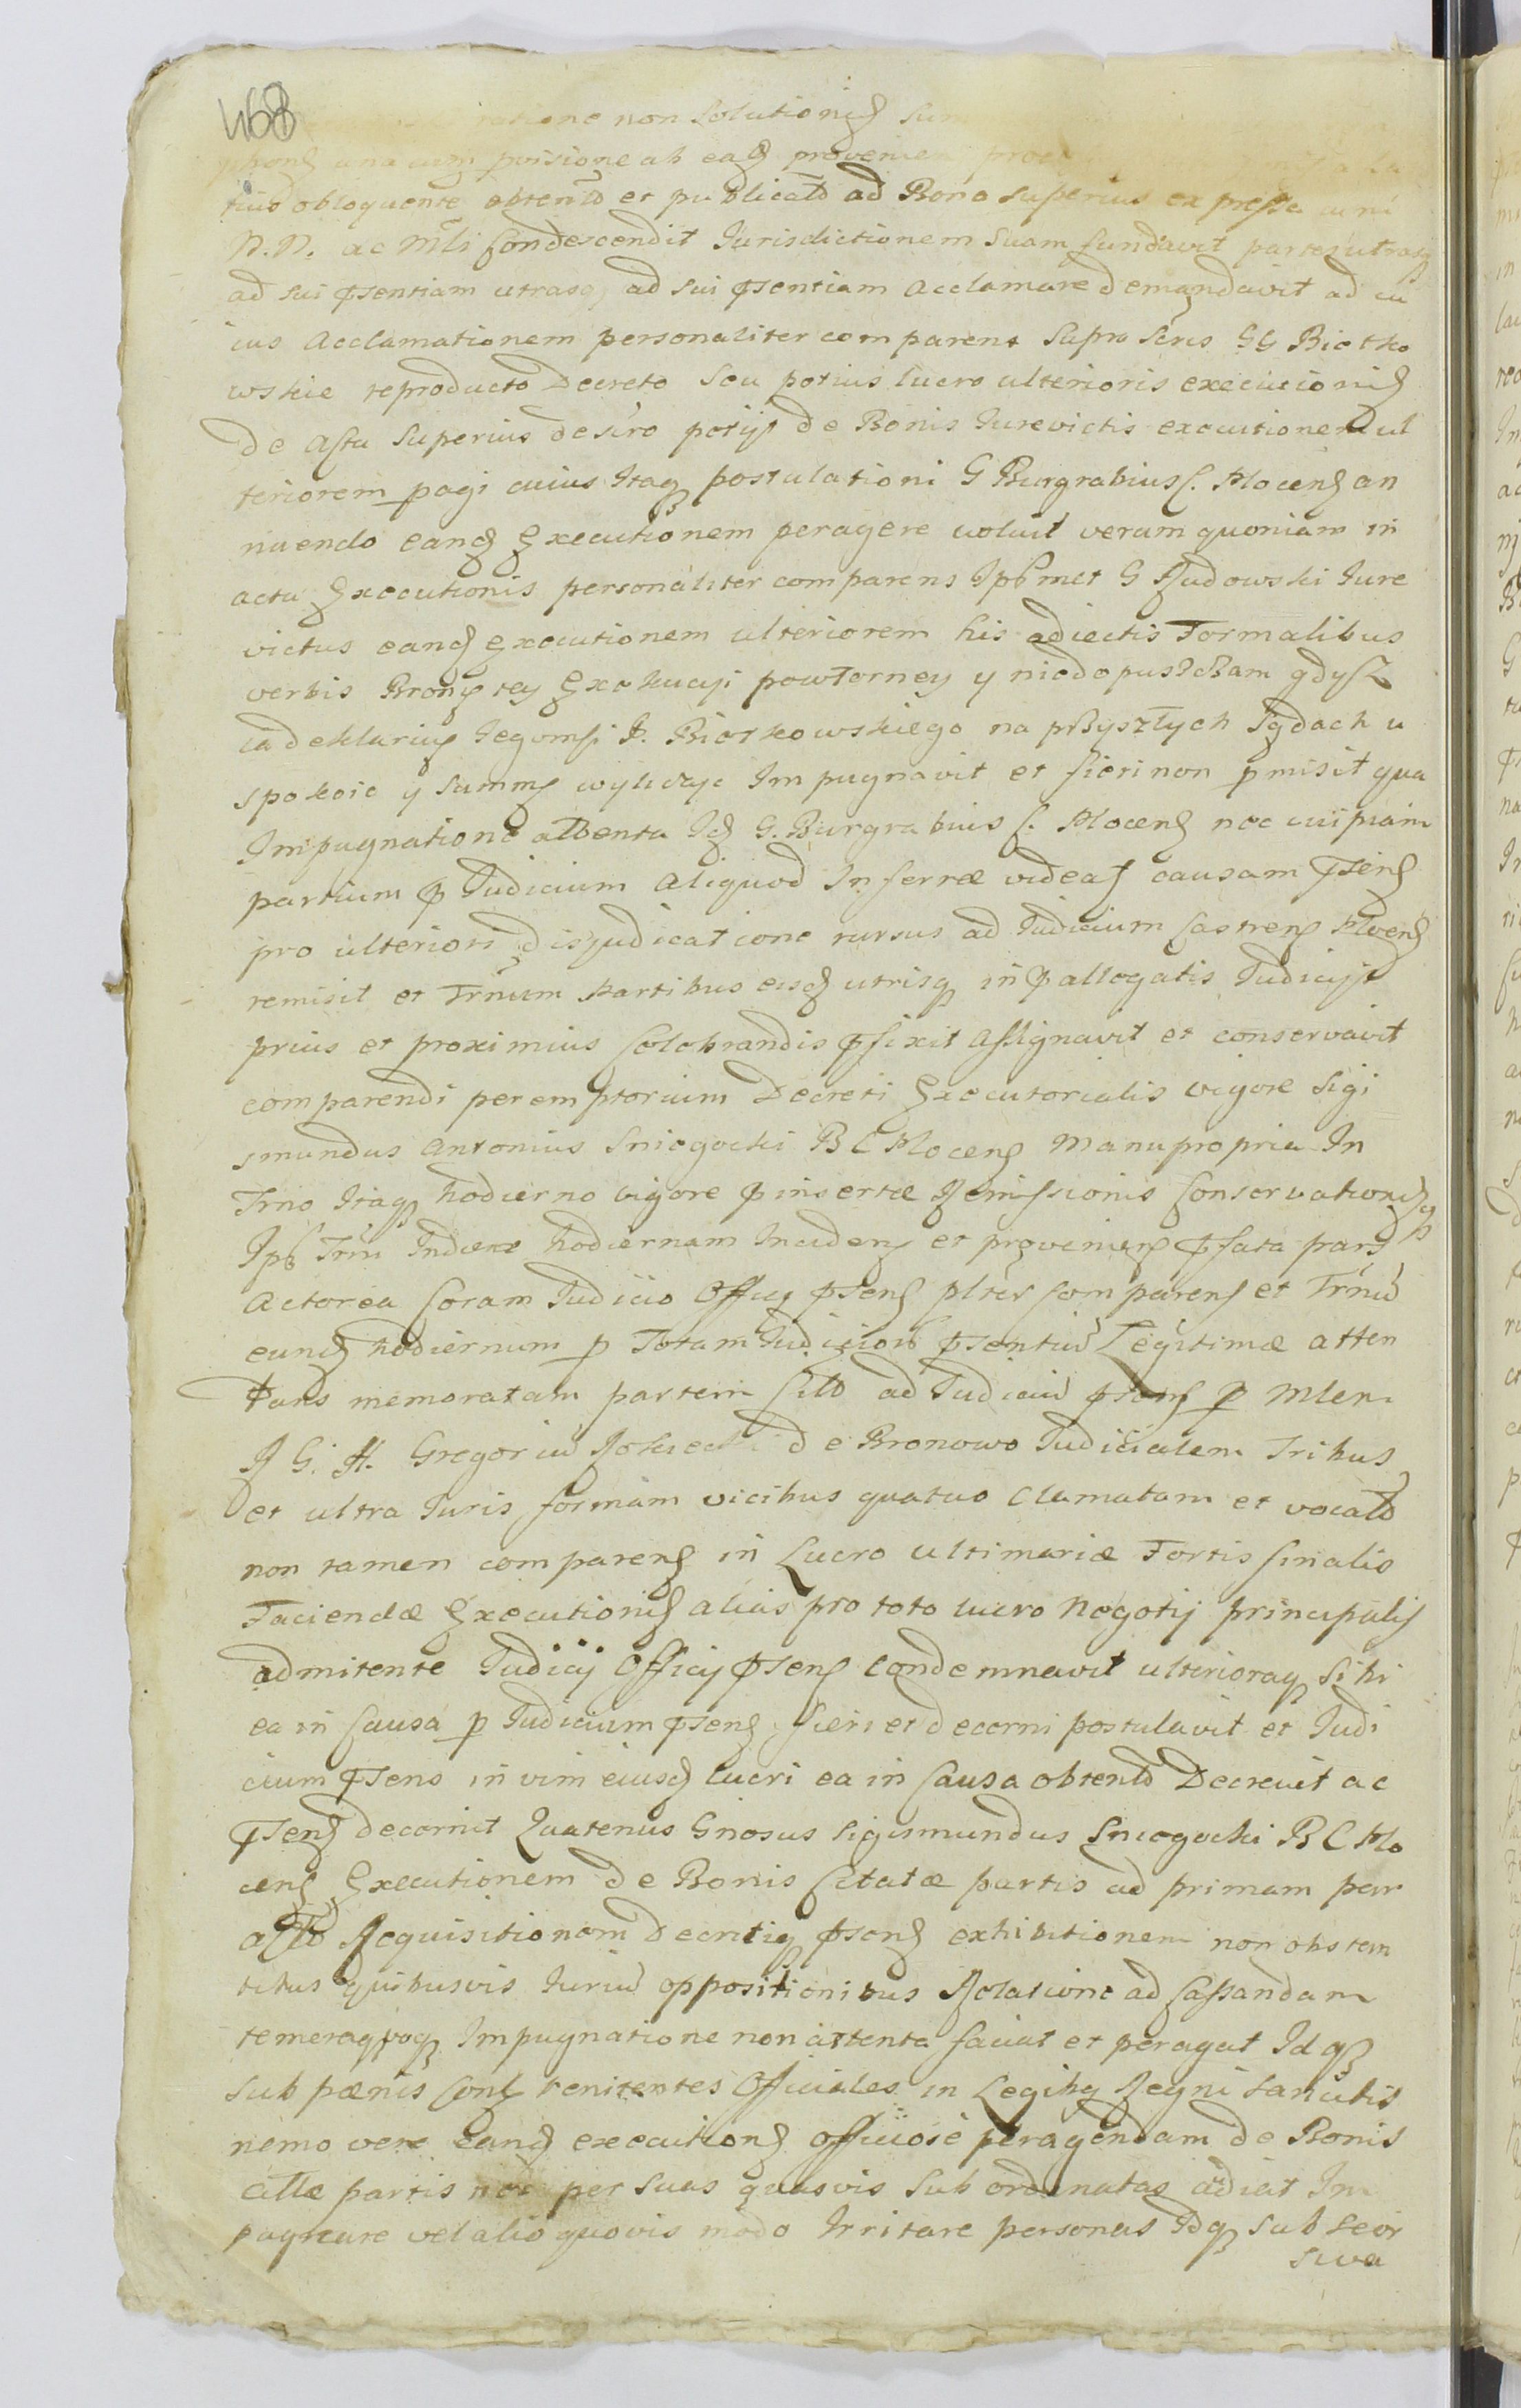 468
ratione non Solutionis
una cum provisione ab
tius obloquente obtent et publicat ad Bona superius expresse
N. N. ac Mli Condescendit Jurisdictionem Suam fundavit partes utrasq
ad sui pntiam utrasq ad sui pntiam acclamare demandavit ad cu
ius acclamationem personaliter comparens GG Biotko
wskie reproducto Decreto Seu potius lucro ulterioris executionis
de actu Superius de potijt de Bonis Jurevictis executionem ul
teriorem pagi cuius Itaq postulationi G Burgrabius C. Plocens an
nuendo eand Executionem peragere voluit verum quoniam in
actu Executionis personaliter comparens Ipsemet G Rudowski Jure
victus eand executionem ulteriorem his adiectis Formalibus
verbis Bronię tey Exekucyi powtorney y niedopuszczam gdysz
ia deklaruię Jegomsi P. Biotkowskiego na przyszłych Sądach u
spokoic y Summę wyliczyc Impugnavit et fieri non pmisit qua
Impugnatione attenta Id G. Burgrabius C. Plocens nec cuipiam
partium p Judicium aliquod Inferre videat causam pnsens
pro ulteriori disjudicatione rursus ad Judicium Castrens Plocens
remisit et Trnum Partibus eisd utrisq in pallegatis Judicijs
prius et proximius Celebrandis pfixit assignavit et conservavit
comparendi peremptorium Decreti Executorialis vigore Sigi
smundus Antonius Sniegocki B C Plocens Manu propria In
Trno Itaq hodierno vigore pinsertæ Remissionis Conservationisq
Ips Trni Indiem hodiernam Incidens et proveniens pfata pars
Actorea Coram Judicio Officij pnsens plter Comparens et Trnu
eund hodiernum p Totam Judicior pntiu Legitimæ atten
tans memoratam partem Citt ad Judiciu pnsens p Mlem
R G. A. Gregoriu de Bronowo Judicialem Tribus
et ultra Juris formam vicibus quatuo Clamatam et vocat
non tamen comparens in Lucro ultimariæ Fortis finalis
Faciendæ Executionis alias pro toto lucro Negotij principalis
admitente Judicij Officij pnsens Condemnavit ulterioraq Sibi
ea in Causa p Judicium pnsens fieri et decerni postulavit et Judi
cium pnsens in vim eiusd lucri ea in Causa obtent Decrevit ac
pnsens decernit Quatenus Gnosus Sigismundus Sniegocki B C Plo
cens Executionem de Bonis Citatæ partis ad primam par
Requisitionem Decretiq pnsens exhibitionem non obstan
tibus quibusvis Juriu oppositionibus Relatione ad Cassandam
Impugnatione non attenta faciat et peragat Idq
sub pænis Cont renitentes Officiales in Legibq Regni sancitis
nemo vere eand executions officiose peragendam de Bonis
cittæ partis nec per suas quasvis Subordinatas adiat Im
pugnare vel alio quovis modo Irritare personas Idq sub seor
siva